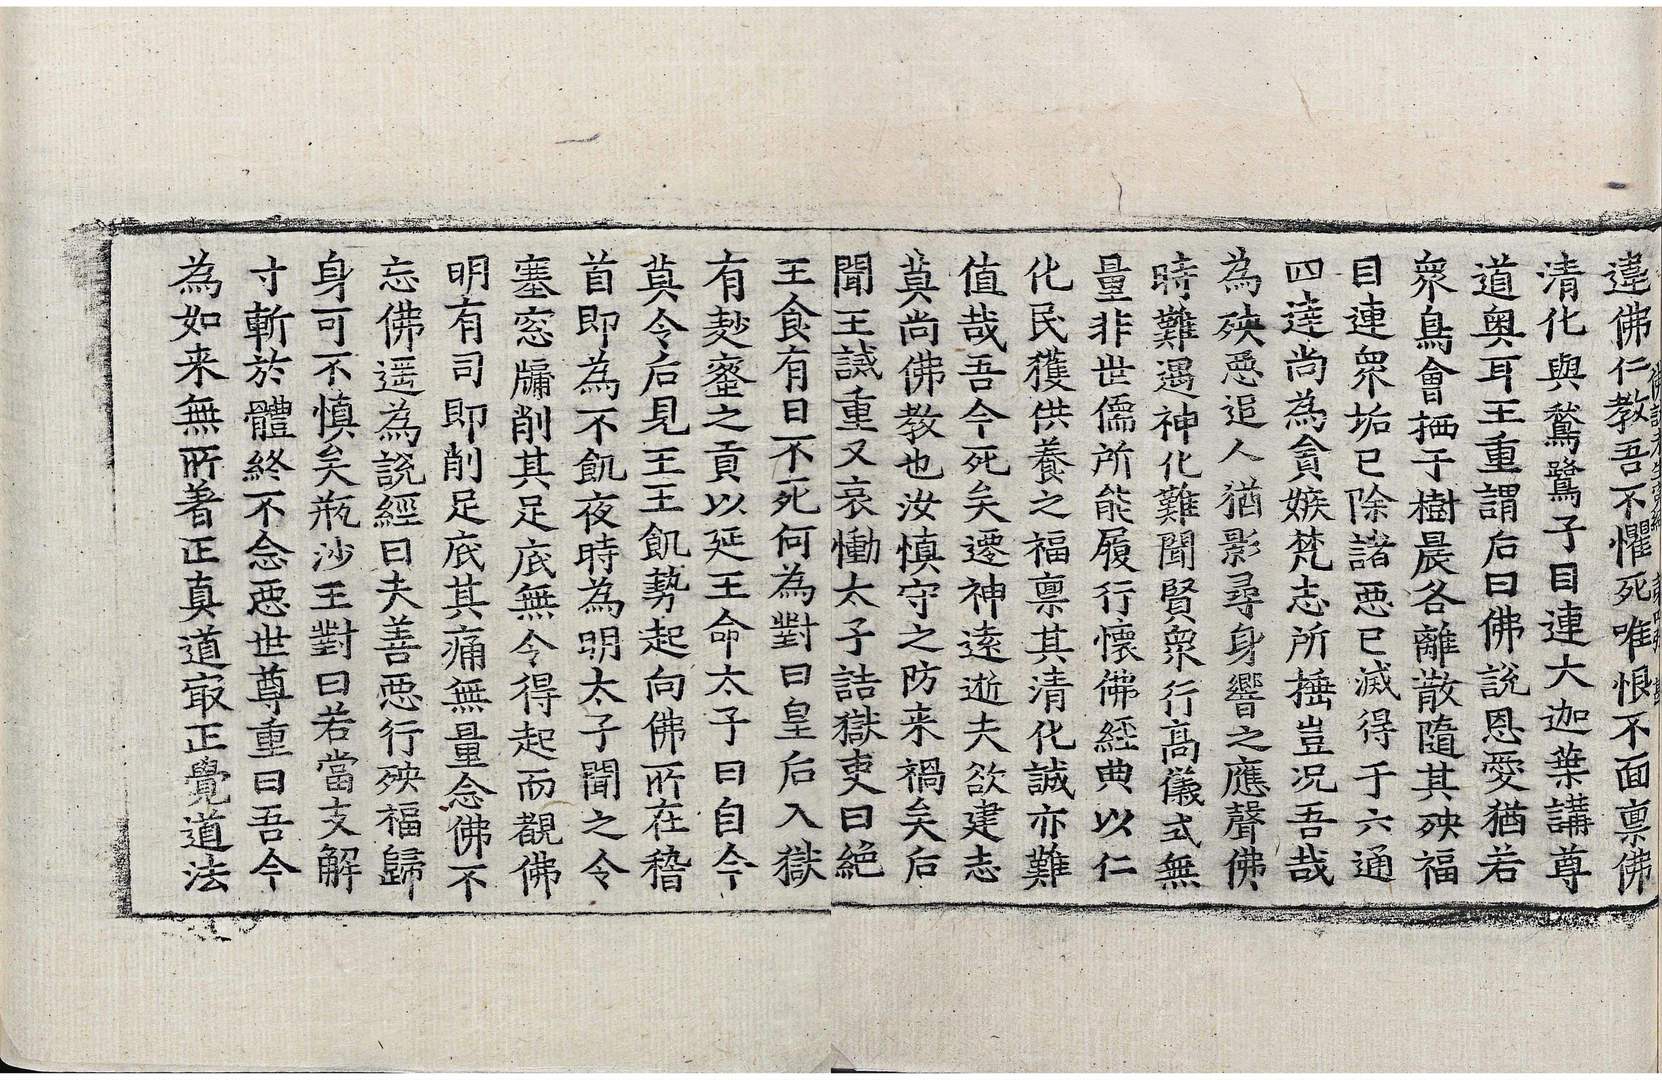 違佛仁教吾不懼死唯恨不面禀佛
清化與鶖鷺子目連大迦葉講尊
道奧耳王重謂后曰佛說恩愛猶若
衆鳥會栖于樹晨各離散隨其殃福
目連衆垢已除諸惡已滅得于六通
四達尚為貪嫉梵志所捶豈況吾哉
為殃惡追人猶影尋身響之應聲佛
時難遇神化難聞賢衆行高儀式無
量非世儒所能履行懷佛經典以仁
化民獲供養之福禀其清化誠亦難
值哉吾今死矣遷神逺逝夫欲建志
莫尚佛教也汝慎守之防来禍矣后
聞王誡重又哀慟太子詰獄吏曰絶
王食有日不死何為對曰皇后入獄
有麨蜜之貢以延王命太子曰自今
莫令后見王王飢勢起向佛所在稽
首即為不飢夜時為明太子聞之令
塞窓牖削其足底無令得起而覩佛
明有司即削足底其痛無量念佛不
忘佛遥為說經曰夫善惡行殃福歸
身可不慎矣瓶沙王對曰若當支解
寸斬於體終不念惡世尊重曰吾今
為如来無所著正真道㝡正覺道法